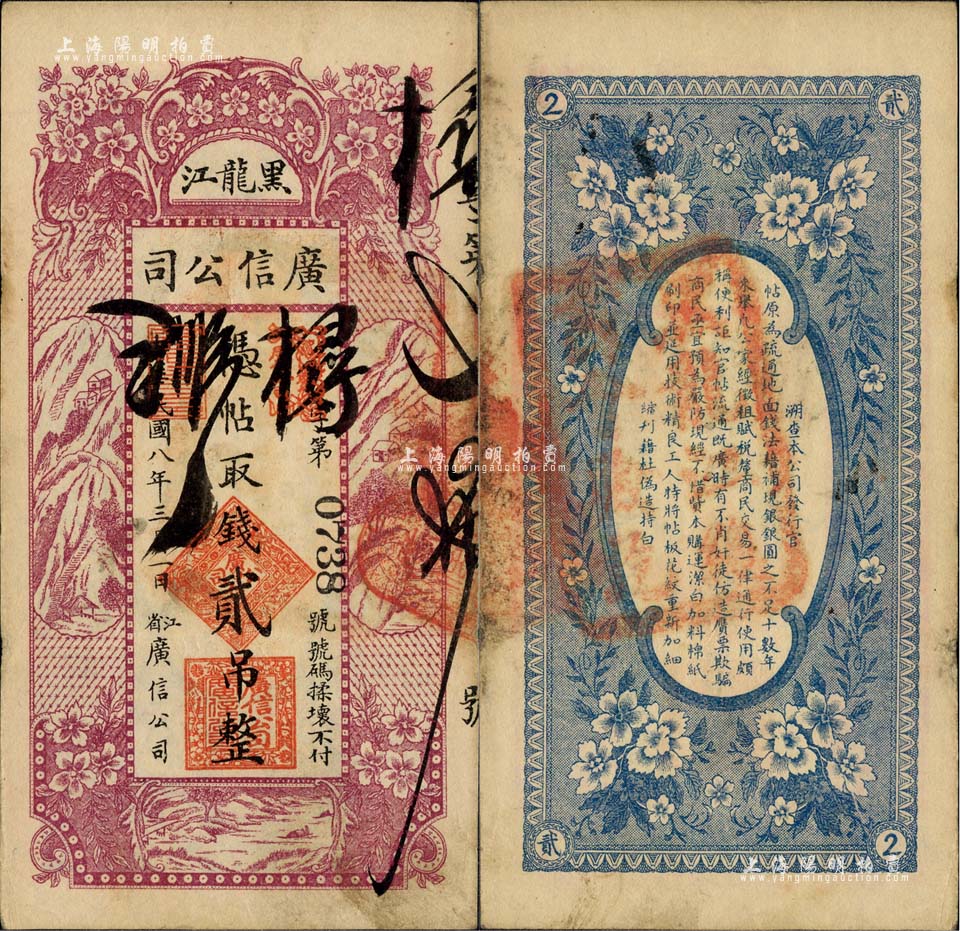 上海陽明拍賣
www.yangmingauction.com
黑龍江
廣信公司
字第
0738
號號碼揉壞不付
憑帖取錢貳吊整
民國八年三
一日
江省廣信公司
號
2
貳
溯查本公司發行官
帖原為疏通地面錢法藉補現銀銀圓之不足十數年
來舉凡公家經徵租賦稅釐商民交易一律通行使用頗
稱便利詎知官帖疏通既廣時有不肖奸徒仿造贋票欺騙
商民亟宜預為嚴防現經不惜貲本購運潔白加料棉紙
刷印並延用技術精良工人特將帖板花紋重新加細
縮刋藉杜偽造特白
貳
2
上海陽明拍賣
www.yangmingauction.com
上海陽明拍賣
www.yangmingauction.com